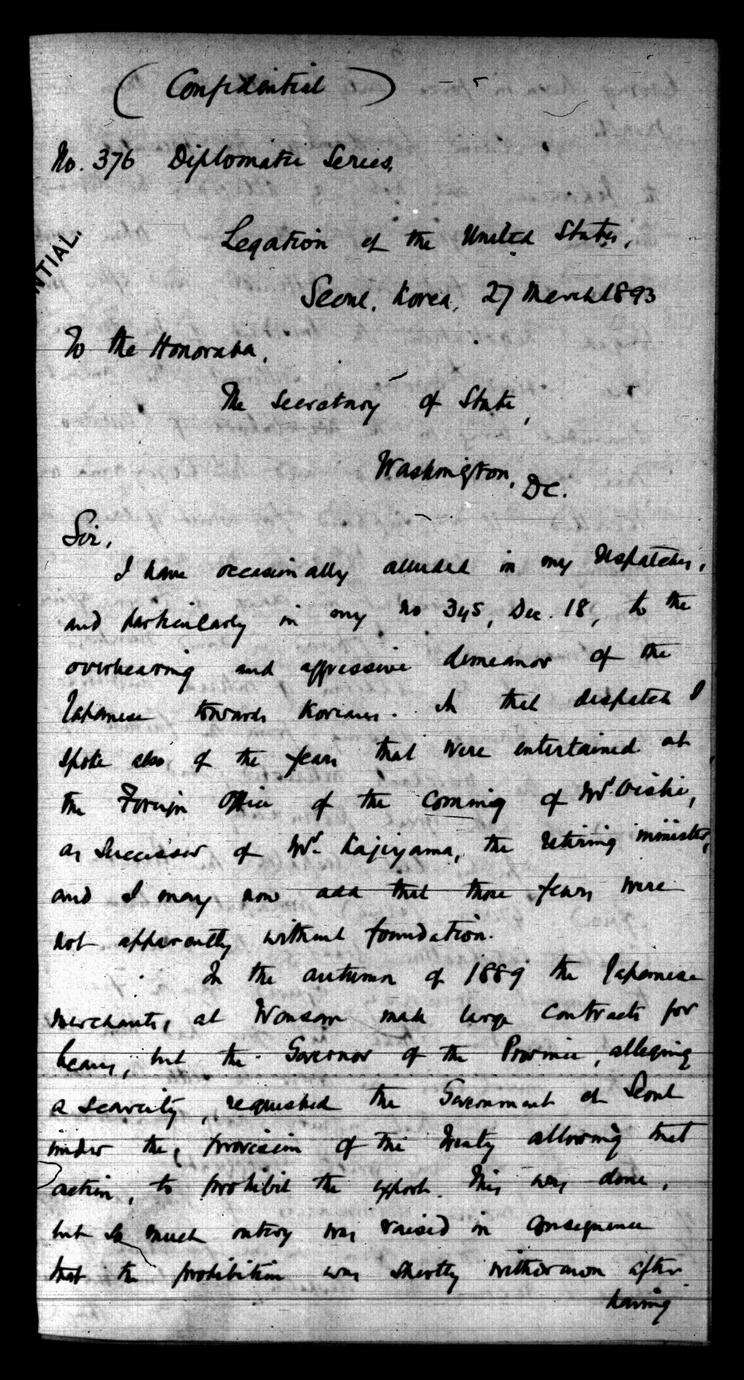 (Confidential)
No. 376 Diplomatic Series,
NTIAL.
Legation of the United States,
Seoul, Korea, 27 March 1893
To the Honorable,
The Secretary of State,
Washington, DC.
Sir,
I have occasionally alluded in my dispatches,
and particularly in my no 345, Dec. 18, to the
overbearing and aggressive demeanor of the
Japanese towards Koreans. In that dispatch I
spoke also of the fears that were entertained at
the Foreign Office of the coming of Mr Oishi,
as successor of Mr. Kajiyama, the retiring minister,
and I may now add that those fears were
not apparently without foundation.
In the autumn of 1889 the Japanese
merchants, at Wonsan made large contracts for
beans, but the Governor of the Province, alleging
a scarcity, requested the Government at Seoul
under the, provision of the Treaty allowing that
action, to prohibit the export. This was done,
but so much outcry was raised in consequence
that the prohibition was shortly withdrawn after
having